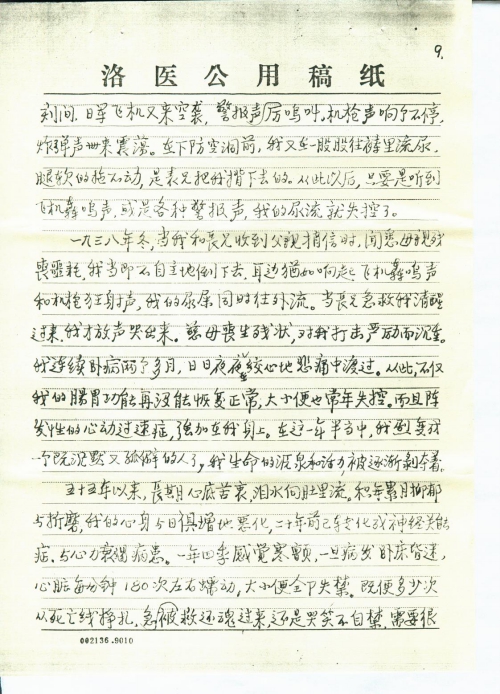 9.
洛医公用稿纸
刻间,日军飞机又来空袭,警报声厉鸣叫,机枪声响个不停,
炸弹声世来震荡。在下防空洞前,我又在一股股往裤里流尿,
腿软的拖不动,是表兄把我揹下去的。从此以后,只要是听到
飞机轰鸣声,或是各种警报声,我的尿流就失控了。
一九三八年冬,当我和表兄收到父親捎信时,闻悉母親残
丧噩耗,我当即不自主地倒下去,耳边犹如响起飞机轰鸣声
和机枪狂射声,我的尿屎同时往外流。当表兄急救我清醒
过来,我才放声哭出来。慈母丧生残状,对我打击严励而沉重。
我连续卧病两个多月,日日夜夜在绞心地悲痛中渡过。从此,不仅
我的肠胃功能再没能恢复正常,大小便也常年失控。而且阵
发性的心动过速症,强加在我身上。在这一年半当中,我
个既沉默又孤僻的人了,我生命的源泉和活力被逐渐剥夺着。
五十五年以来,長期心底苦衷,泪水向肚里流。积年累月抑郁
与折磨,我的心身与日俱增地恶化,二十年前已夸变化成神经失能
症,与心力衰竭病患。一年四季感觉寒颤,一旦病发卧床昏迷,
心脏每分钟180次左右蠕动,大小便全部失禁。既便多少次
从死亡线挣扎,急被救还魂过来,还是哭笑不自禁,需要很
002136.9010